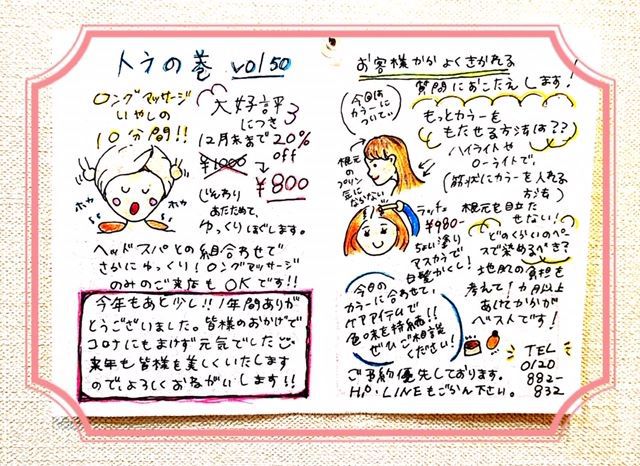 トラの巻 vol50
ロングマッサージ
いやしの
10分間!!
大好評
につき
12月末まで20%
off
¥1000
¥800
じんわり
あたためて、
ゆっくりほぐします。
ホッ
ホッ
ヘッドスパとの組合わせで
さらにゆっくり!ロングマッサージ
のみのご来店もOKです!!
今年もあと少し!!1年間ありが
とうございました。皆様のおかげで
コロナにもまけず元気でした☺
来年も皆様を美しくいたします
ので、よろしくおねがいします!!
お客様からよくきかれる
質問におこたえします!
今回は
カラーに
ついて。
もっとカラーを
もたせる方法は??
ハイライトや
ローライトで、
(筋状にカラーを入れる
方法)
根元を目立た
せない!
根元の
プリン
気に
ならない
ラッシュ
¥980-
ちょい塗り
マスカラで
白髪かくし!
どのくらいのペー
スで染めるべき?
地肌の負担を
考えて1カ月以上
あけてからが
ベストです!
今回の
カラーに合わせて、
ケアアイテムで
色味を持続!!
ぜひご相談
ください!
ご予約優先しております。
HP・LINEもごらん下さい。
TEL
0120
882-
832